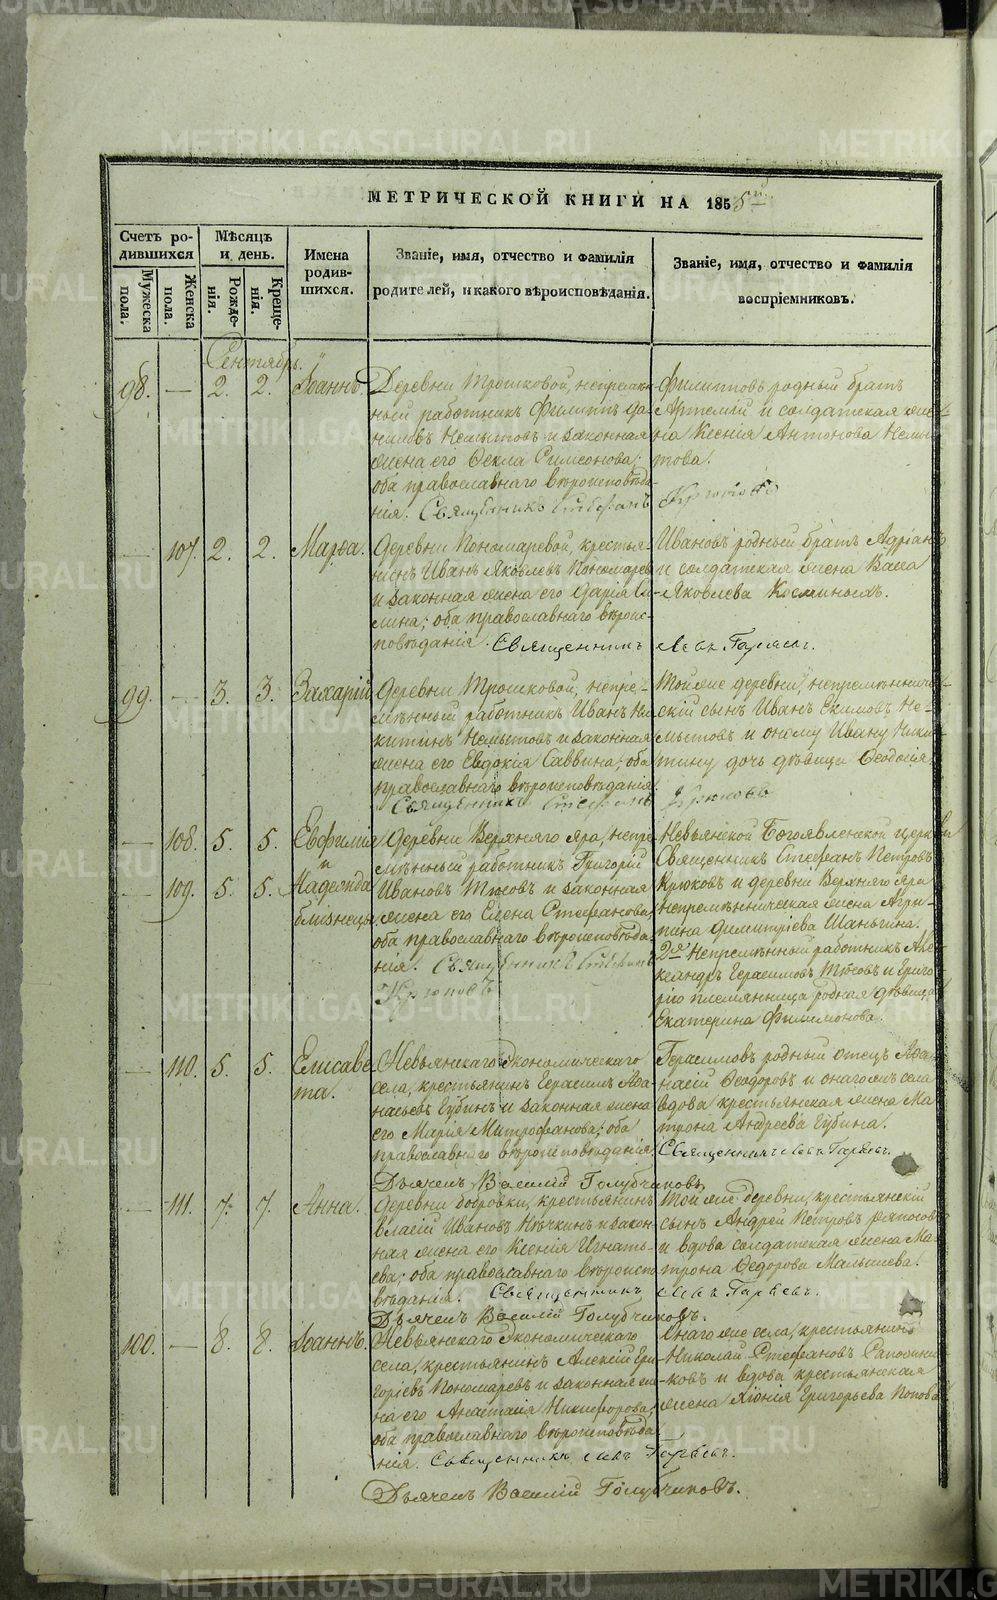 МЕТРИЧЕСКОЙ КНИГИ НА 1855й
Счетъ родившихся
Мѣсяцъ и день.
Имена родившихся.
Званіе, имя, отчество и фамилія родителей, и какого вѣроисповѣданія.
Званіе, имя, отчество и фамилія воспріемниковъ.
Мужеска пола.
Женска пола.
Рожденія.
Крещенія.
Сентябрь.
98. — 2. 2. Іоаннъ.
Деревни Трошковой, непремѣн-
ный работникъ Филиппъ Да-
ниловъ Немытовъ и законная
жена его Ѳекла Симеонова;
оба православнаго вѣроисповѣда-
нія. Священникъ Стефанъ
Филипповъ родный братъ
Артемій и солдатская же-
на Ксенія Антонова Немы-
това.
Крюковъ
— 107. 2. 2. Марѳа.
Деревни Пономаревой, крестья-
нинъ Иванъ Яковлевъ Пономарев
и законная жена его Дарія
оба православнаго вѣроис-
повѣданія. Священникъ
Ивановъ родный братъ Адріанъ
и солдатская жена Васса
Яковлева
Левъ Гаряевъ.
99. — 3. 3. Захарій
Деревни Трошковой, непре-
мѣнный работникъ Иванъ Ни-
китинъ Немытовъ и законная
жена его Евдокія Саввина; оба
православнаго вѣроисповѣданія.
Священникъ Стефанъ
Той же деревни, непремѣнниче-
скій сынъ Иванъ Екимовъ Не-
мытовъ и оному Ивану Ники-
тину дочь дѣвица Ѳеодосія.
Крюковъ
— 108. 5. 5. Евфимія
и
— 109. 5. 5. Надежда
близнецы.
Деревни Верхняго Яра, непре-
мѣнный работникъ Григорій
Ивановъ и законная
жена его Елена Стефанова;
оба православнаго вѣроисповѣда-
нія. Священникъ Стефанъ
Крюковъ
Невьянской Богоявленской церкви
Священникъ Стефанъ Петровъ
Крюковъ и деревни Верхняго Яра
непремѣнническая жена Агри-
пина Димитріева Шаньгина.
2е Непремѣнный работникъ Але-
ксандръ Герасимовъ и Григо-
рію племянница родная дѣвица
Екатерина Филимонова.
— 110. 5. 5. Елисаве-
та.
Невьянскаго Экономическаго
села, крестьянинъ Герасимъ Аѳа-
насьевъ Губинъ и законная жена
его Марія Митрофанова; оба
православнаго вѣроисповѣданія.
Дьячекъ Василій Голубчиковъ
Герасимовъ родный отецъ Аѳа-
насій Ѳеодоровъ и онагожъ села
вдова крестьянская жена Ма-
трона Андреева Губина.
Священникъ Левъ Гаряевъ.
— 111. 7. 7. Анна.
Деревни Бобровки, крестьянинъ
Власій Ивановъ и закон-
ная жена его Ксенія Игнать-
ева; оба православнаго вѣроиспо-
вѣданія. Священникъ
Дьячекъ Василій Голубчиковъ.
Той же деревни, крестьянскій
сынъ Андрей Петровъ
и вдова солдатская жена Ма-
трона Ѳедорова Малышева.
Левъ Гаряевъ.
100. — 8. 8. Іоаннъ.
Невьянскаго Экономическаго
села, крестьянинъ Алексій Гри-
горіевъ Пономаревъ и законная же-
на его Анастасія Никифорова;
оба православнаго вѣроисповѣда-
нія. Священникъ Левъ Гаряевъ.
Дьячекъ Василій Голубчиковъ.
Онаго же села, крестьянинъ
Николай Стефановъ Сапожни-
ковъ и вдова крестьянская
жена Хіонія Григорьева Попова.
METRIKI.GASO-URAL.RU